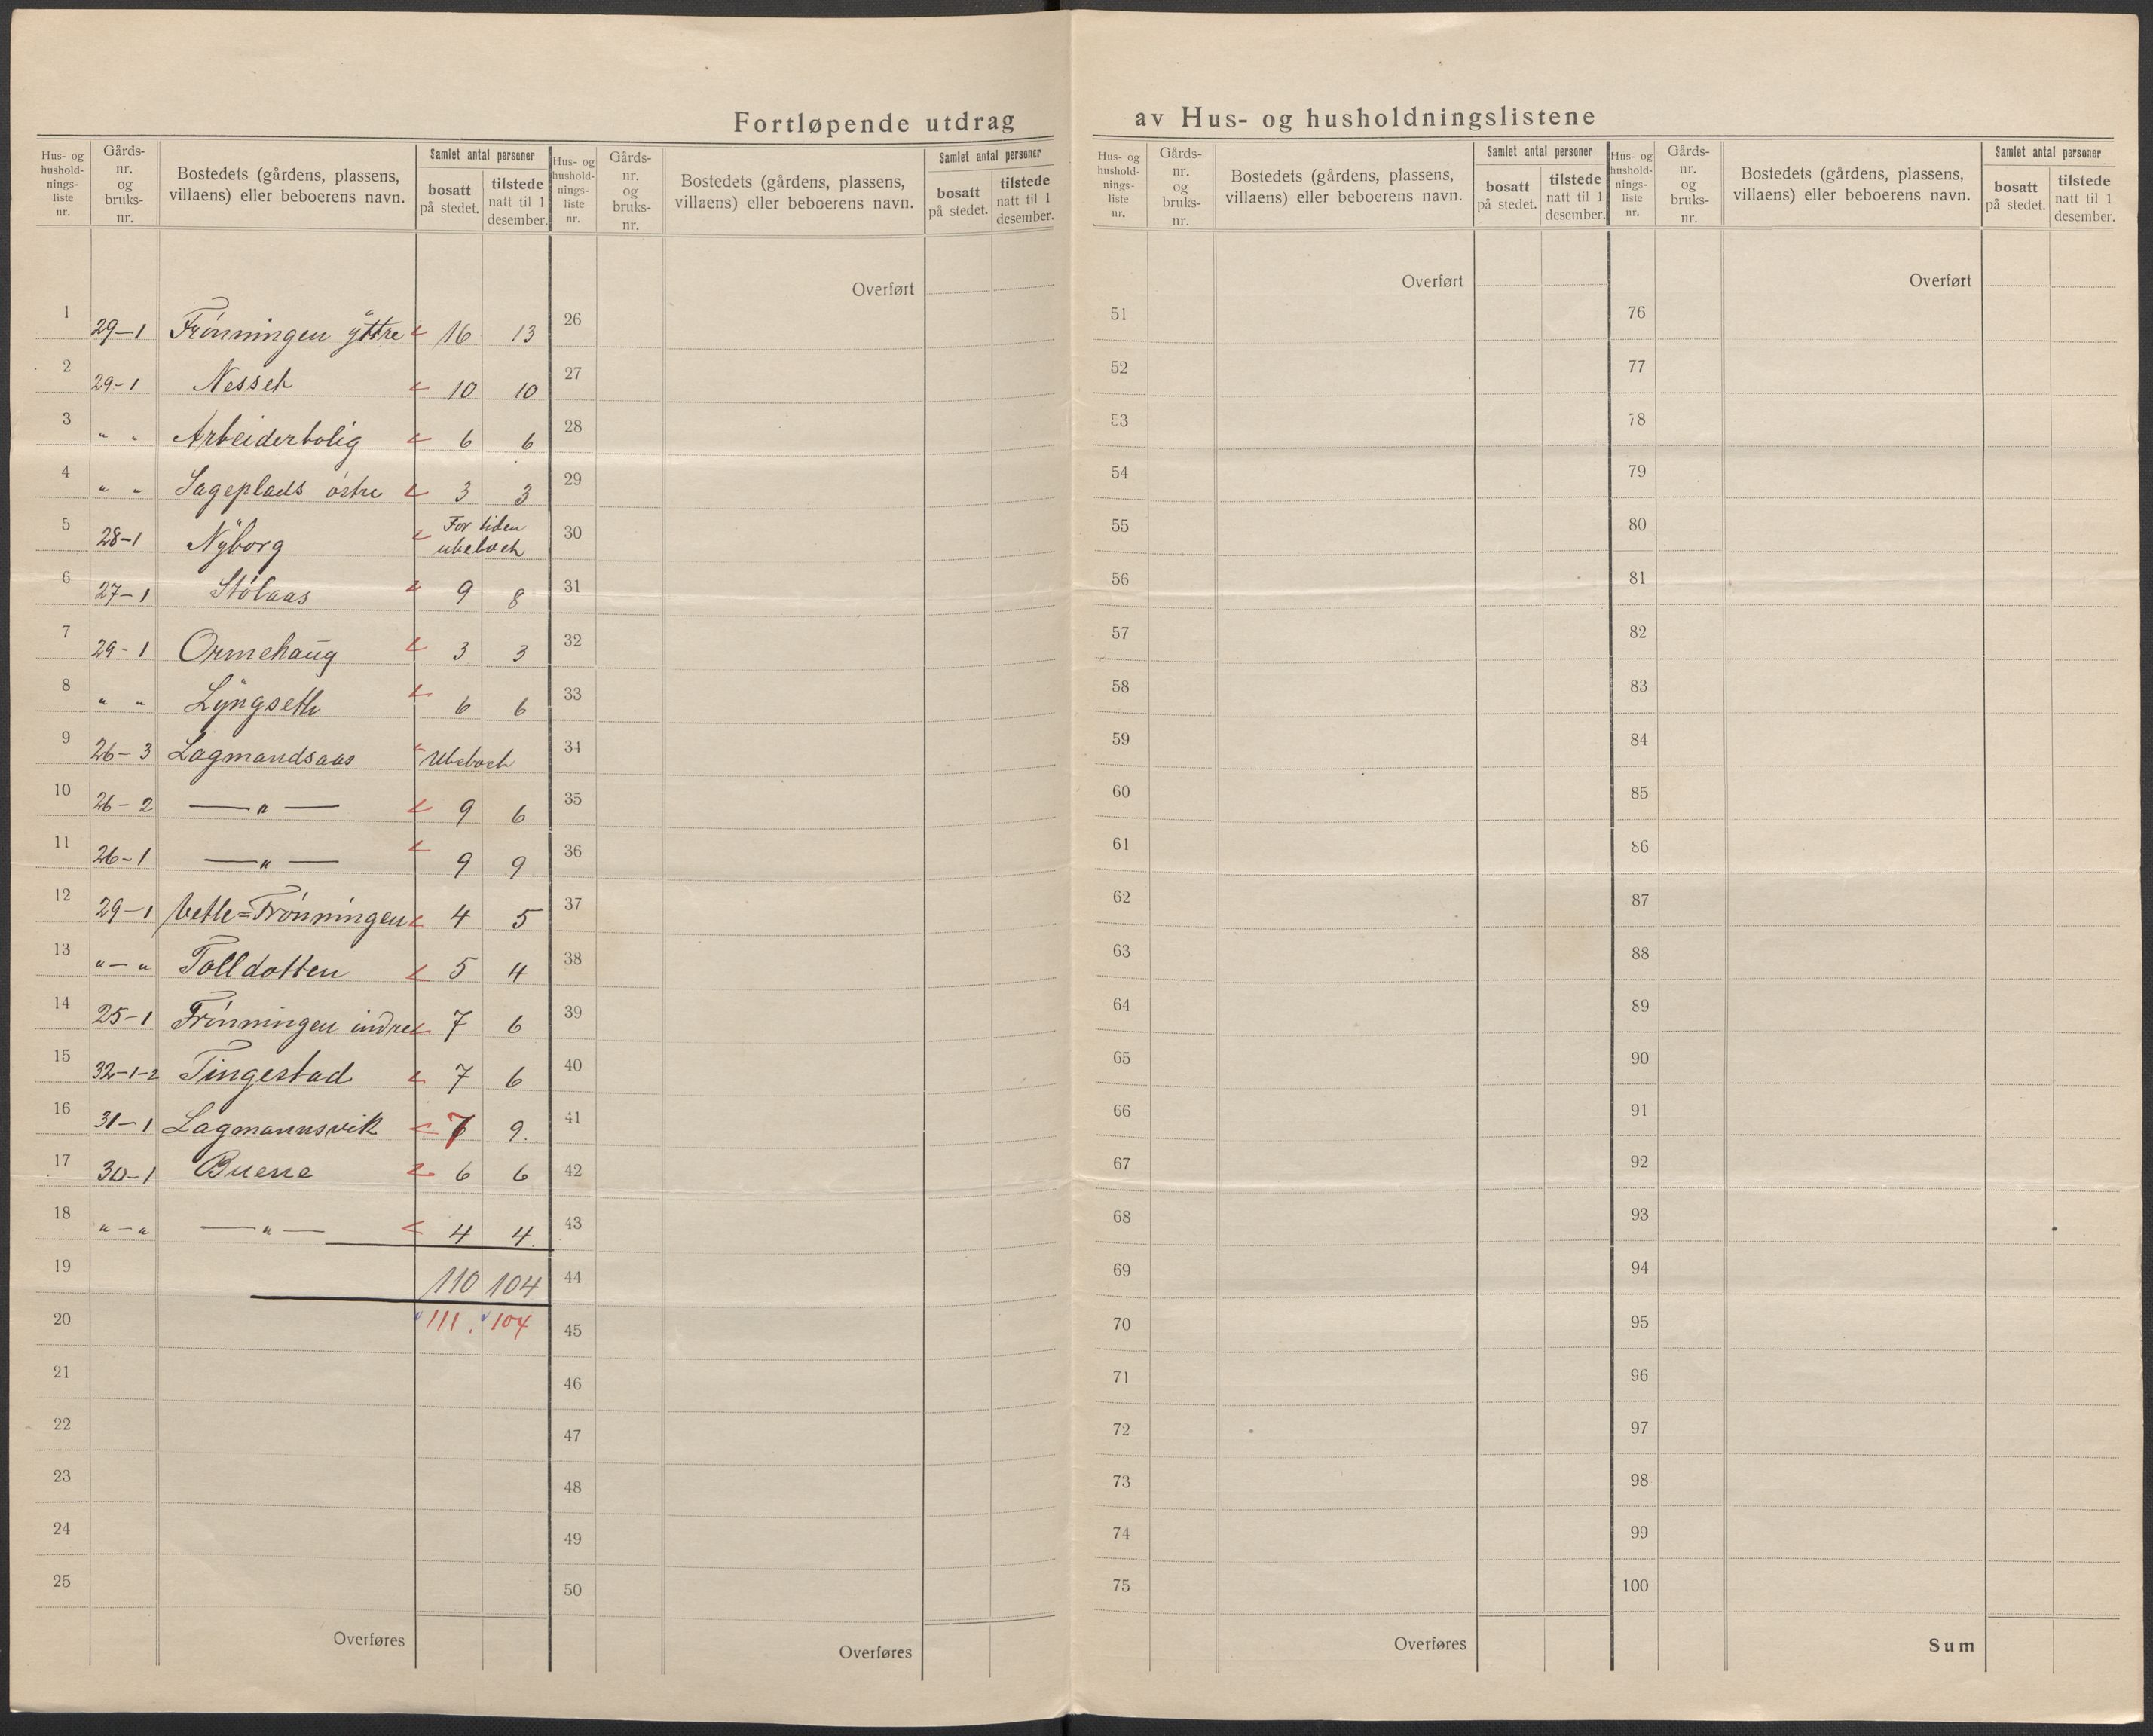 Fortløpende utdrag av Hus- og husholdningslistene
Hus- og hushold-nings-liste nr. Gårds-nr. og bruks-nr. Bostedets (gårdens, plassens, villaens) eller beboerens navn. Samlet antal personer bosatt på stedet. tilstede natt til 1 desember.
1 29-1 Frønningen ÿttre 16 13
2 29-1 Nesseh 10 10
3 " " Arbeiderbolig 6 6
4 " " Sageplads østre 3 3
5 28-1 Nÿborg For tiden ubeboeh
6 27-1 Stølaas 9 8
7 29-1 Ormehaug 3 3
8 " " Lÿngseth 6 6
9 26-3 Lagmandsaas Ubeboeh
10 26-2 —"— 9 6
11 26-1 —"— 9 9
12 29-1 Vetle=Frønningen 4 5
13 "-" Tolldotten 5 4
14 25-1 Frønningen indre 7 6
15 32-1-2 Tingestad 7 6
16 31-1 Lagmannsvik 7 9.
17 30-1 Buene 6 6
18 "-" —"— 4 4
19 110 104
20 111. 104
21
22
23
24
25
Overføres
Hus- og hushold-nings-liste nr. Gårds-nr. og bruks-nr. Bostedets (gårdens, plassens, villaens) eller beboerens navn. Samlet antal personer bosatt på stedet. tilstede natt til 1 desember.
Overført
26
27
28
29
30
31
32
33
34
35
36
37
38
39
40
41
42
43
44
45
46
47
48
49
50
Overføres
Hus- og hushold-nings-liste nr. Gårds-nr. og bruks-nr. Bostedets (gårdens, plassens, villaens) eller beboerens navn. Samlet antal personer bosatt på stedet. tilstede natt til 1 desember.
Overført
51
52
53
54
55
56
57
58
59
60
61
62
63
64
65
66
67
68
69
70
71
72
73
74
75
Overføres
Hus- og hushold-nings-liste nr. Gårds-nr. og bruks-nr. Bostedets (gårdens, plassens, villaens) eller beboerens navn. Samlet antal personer bosatt på stedet. tilstede natt til 1 desember.
Overført
76
77
78
79
80
81
82
83
84
85
86
87
88
89
90
91
92
93
94
95
96
97
98
99
100
Sum